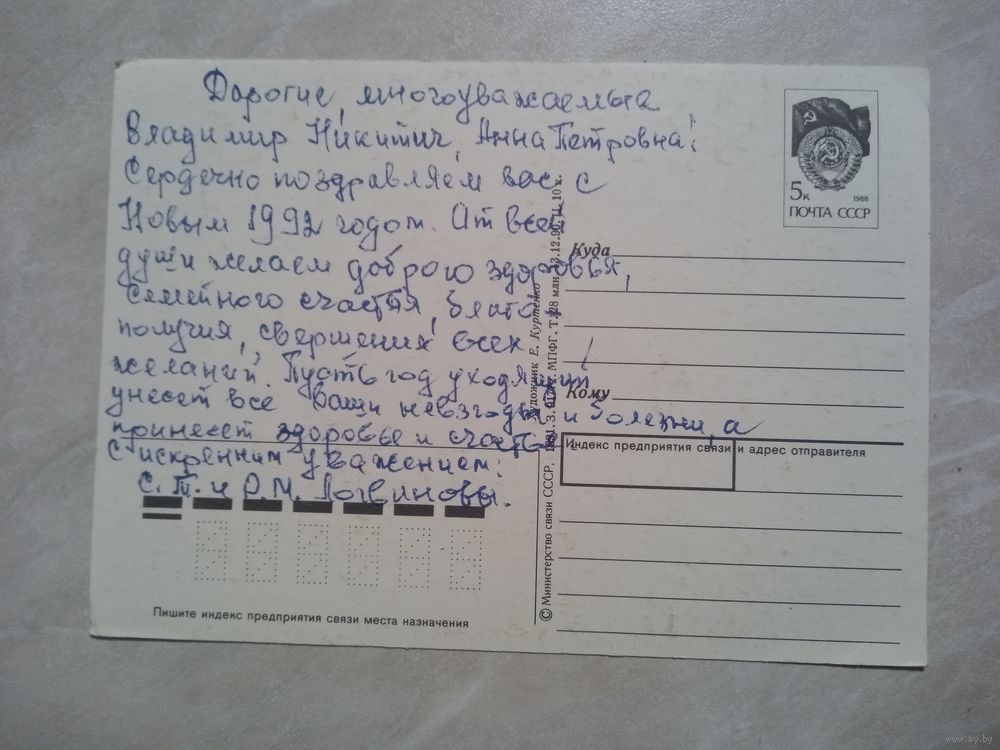 Дорогие, многоуважаемые
Владимир Никитич, Анна Петровна!
Сердечно поздравляем вас с
Новым 1992 годом. От всей
души желаем доброго здоровья,
семейного счастья, благопо-
получия, свершения всех
желаний. Пусть год уходящий
унесет все Ваши невзгоды и болезни, а
принесет здоровье и счастье.
С искренним уважением:
С.Т. и Р.М. Логвиновы.
5к 1988
ПОЧТА СССР
Куда
Кому
Индекс предприятия связи и адрес отправителя
Пишите индекс предприятия связи места назначения
© Министерство связи СССР, 1991. З. МПФГ. Т. 28 млн 13.12.90. Ц. 10 к.
Художник Е. Куртенко
www.ay.by